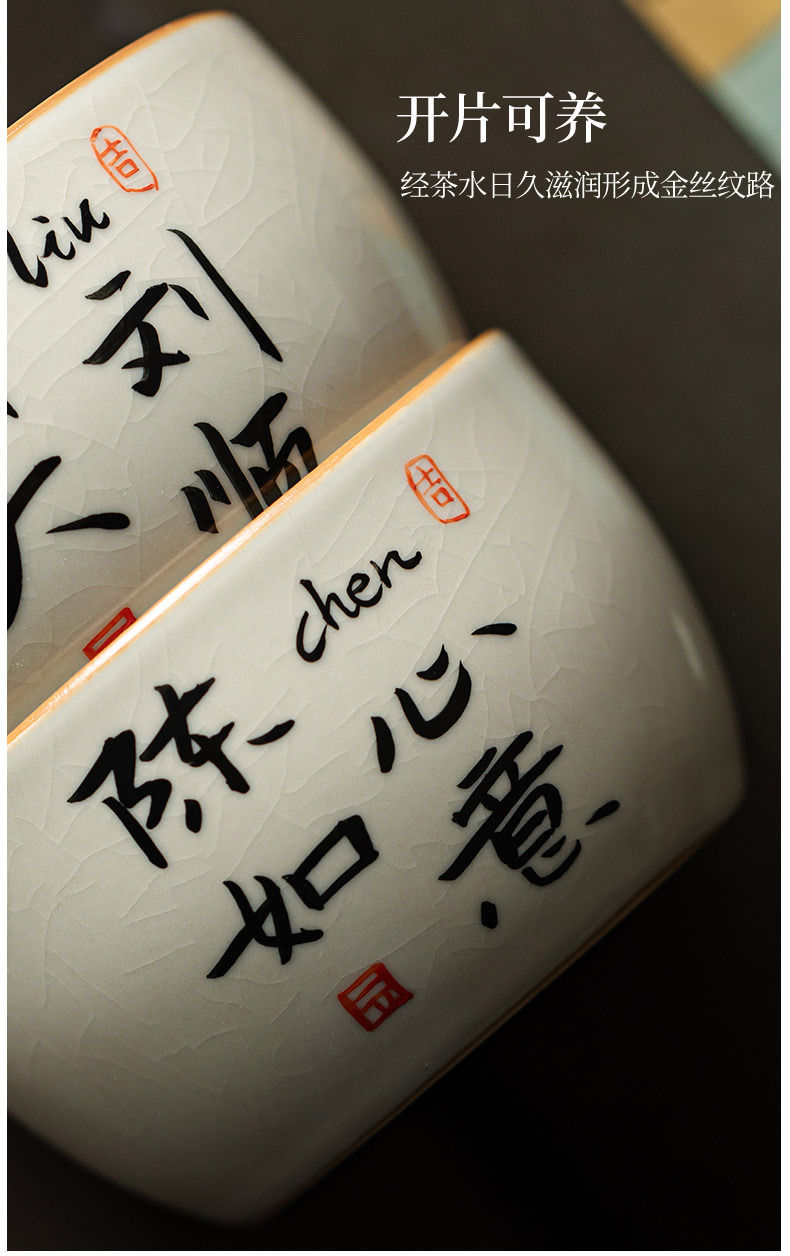 开片可养
经茶水日久滋润形成金丝纹路
吉
liu
刘
大顺
吉
chen
陈心
如意